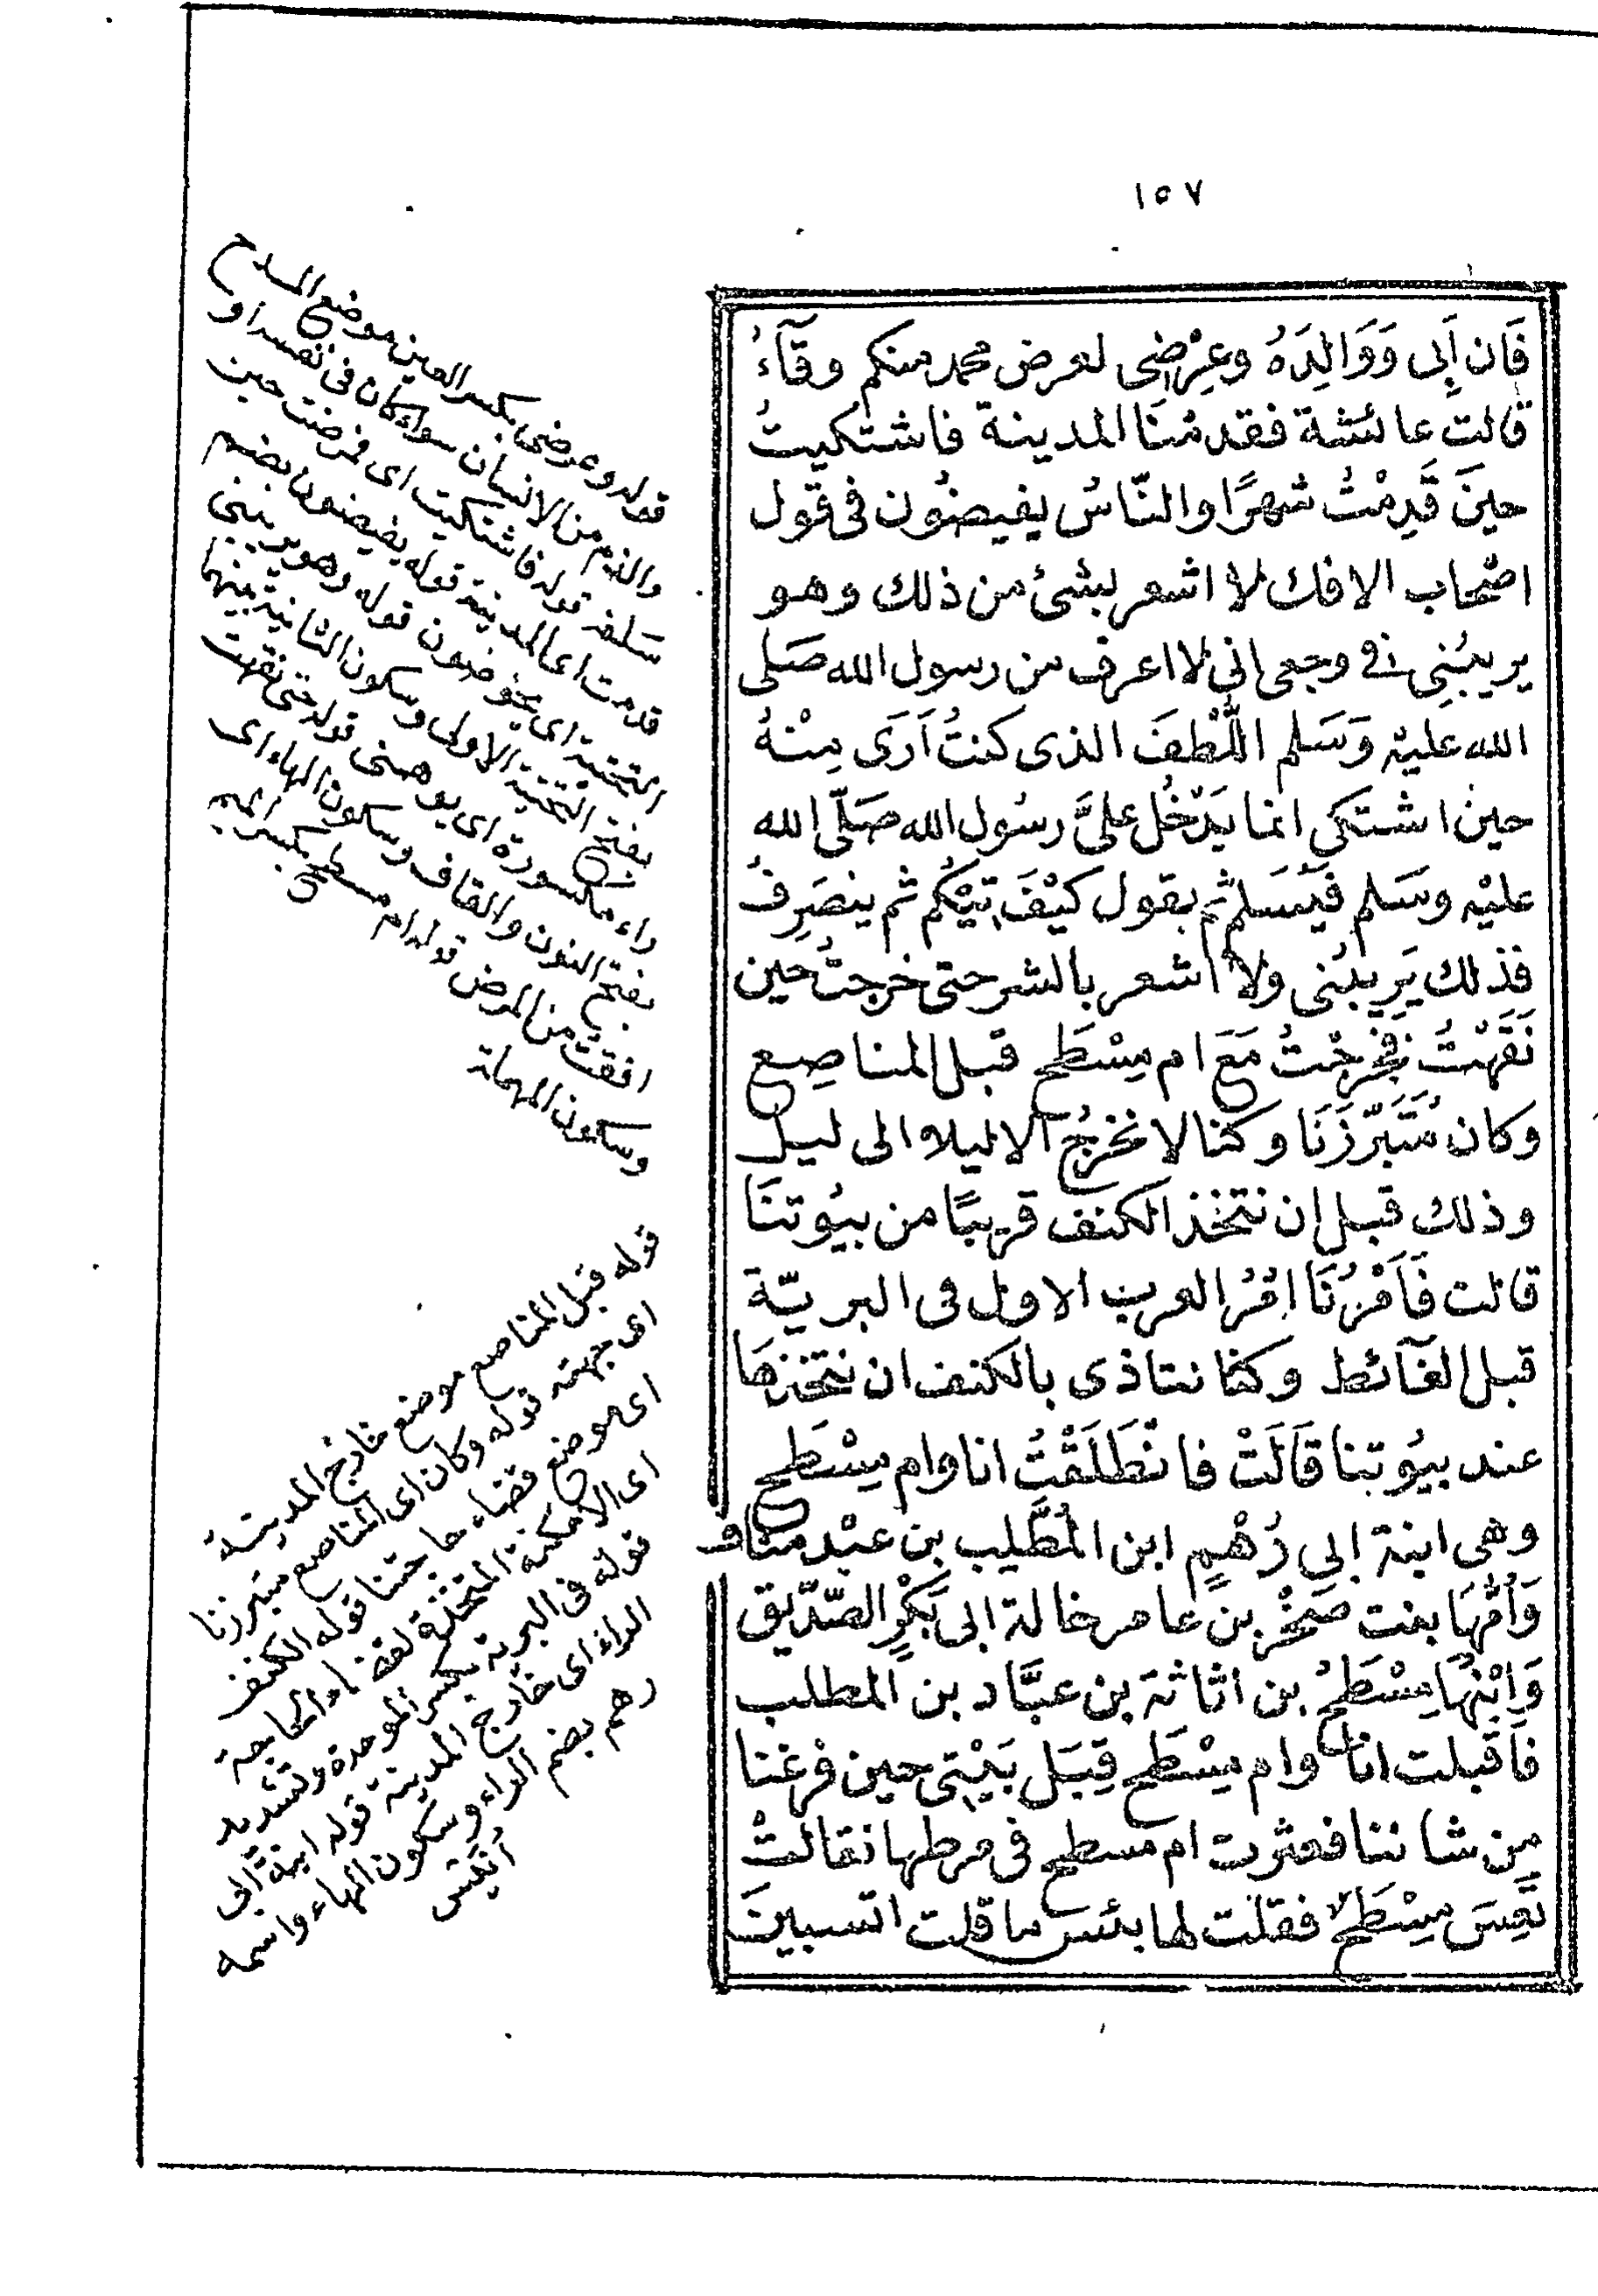 ١٥٧
فَان اَبِى وَوَالِدَهُ وعِرْضِى لعرض محمد منكم وقَآءُ
قالت عائشة فقدمْنَا المدينة فاشتكيتُ
حينَ قَدِمْتُ شهرًا والنّاسُ يفيضُون فى قول
اصْحاب الافك لا اشعر بشئ من ذلك وهو
يريبُنِى فى وجعى انى لا اعرف من رسول الله صَلى
الله عليْه وَسَلم اللُّطْفَ الذى كنتُ اَرَى مِنْهُ
حين اشتكى انما يَدْخُل علىَّ رسُول الله صَلَّى الله
عليْه وسَلم فَيُسَلم ثم يقول كيْفَ تِيْكُم ثم ينصَرِفُ
فذلك يَرِيبُنى ولا اشعر بالشر حتى خرجتُ حين
نَقَهْتُ فخرجْتُ مَعَ ام مِسْطَح قبل المناصِع
وكان مُتَبَرَّزَنَا وكنا لا نخرجُ الا ليلا الى ليل
وذلك قبل ان نتخذ الكنف قريبًا من بيُوتنَا
قالت فَاَمْرُنَا امْرُ العرب الاول فى البريّة
قبل الغَآئط وكنا نتاذى بالكنف ان نتخذهَا
عند بيُوتنا قَالَتْ فانْطَلَقْتُ انا وام مِسْطَح
وهى ابنة ابى رُهْمٍ ابن المُطَّلِب بن عبْد مناف
وَاُمُّهَا بنت صَخْر بن عامر خالة ابى بَكْرٍ الصّدّيق
وَابْنُهَا مِسْطَحُ بن اثاثة بن عبَّاد بن المطلب
فَاَقبلت انا وام مِسْطَح قِبَل بَيْتِى حين فرغنا
مِن شاننا فعثرت ام مسطح فى مرطها فقالتْ
تَعِسَ مِسْطَح فقلْت لها بئس ما قلت اتسبينَ
قوله وعرضى بكسر العين موضع المدح
والذم من الانسان سواء كان فى نفسه او
سَلفه قوله فاشتكيت اى مرضت حين
قدمت اى المدينة قوله يفيضون بضم
التحتية اى يخوضون قوله وهو يريبنى
بفتح التحتية الاولى وسكون الثانية بينهما
راء مكسورة اى يوهمنى قوله حتى نقهت
بفتح النون والقاف وسكون الهاء اى
افقت من المرض قوله ام مسطح بكسر الميم
وسكون المهملة
قوله قبل المناصع موضع خارج المدينة
اى جهته قوله وكان اى المناصع متبرزنا
اى موضع قضاء حاجتنا قوله الكنف
اى الامكنة المتخذة لقضاء الحاجة
قوله فى البرية بكسر الموحدة وتشديد
الراء اى خارج المدينة قوله ابنة ابى
رهم بضم الراء وسكون الهاء واسمه
أنيس